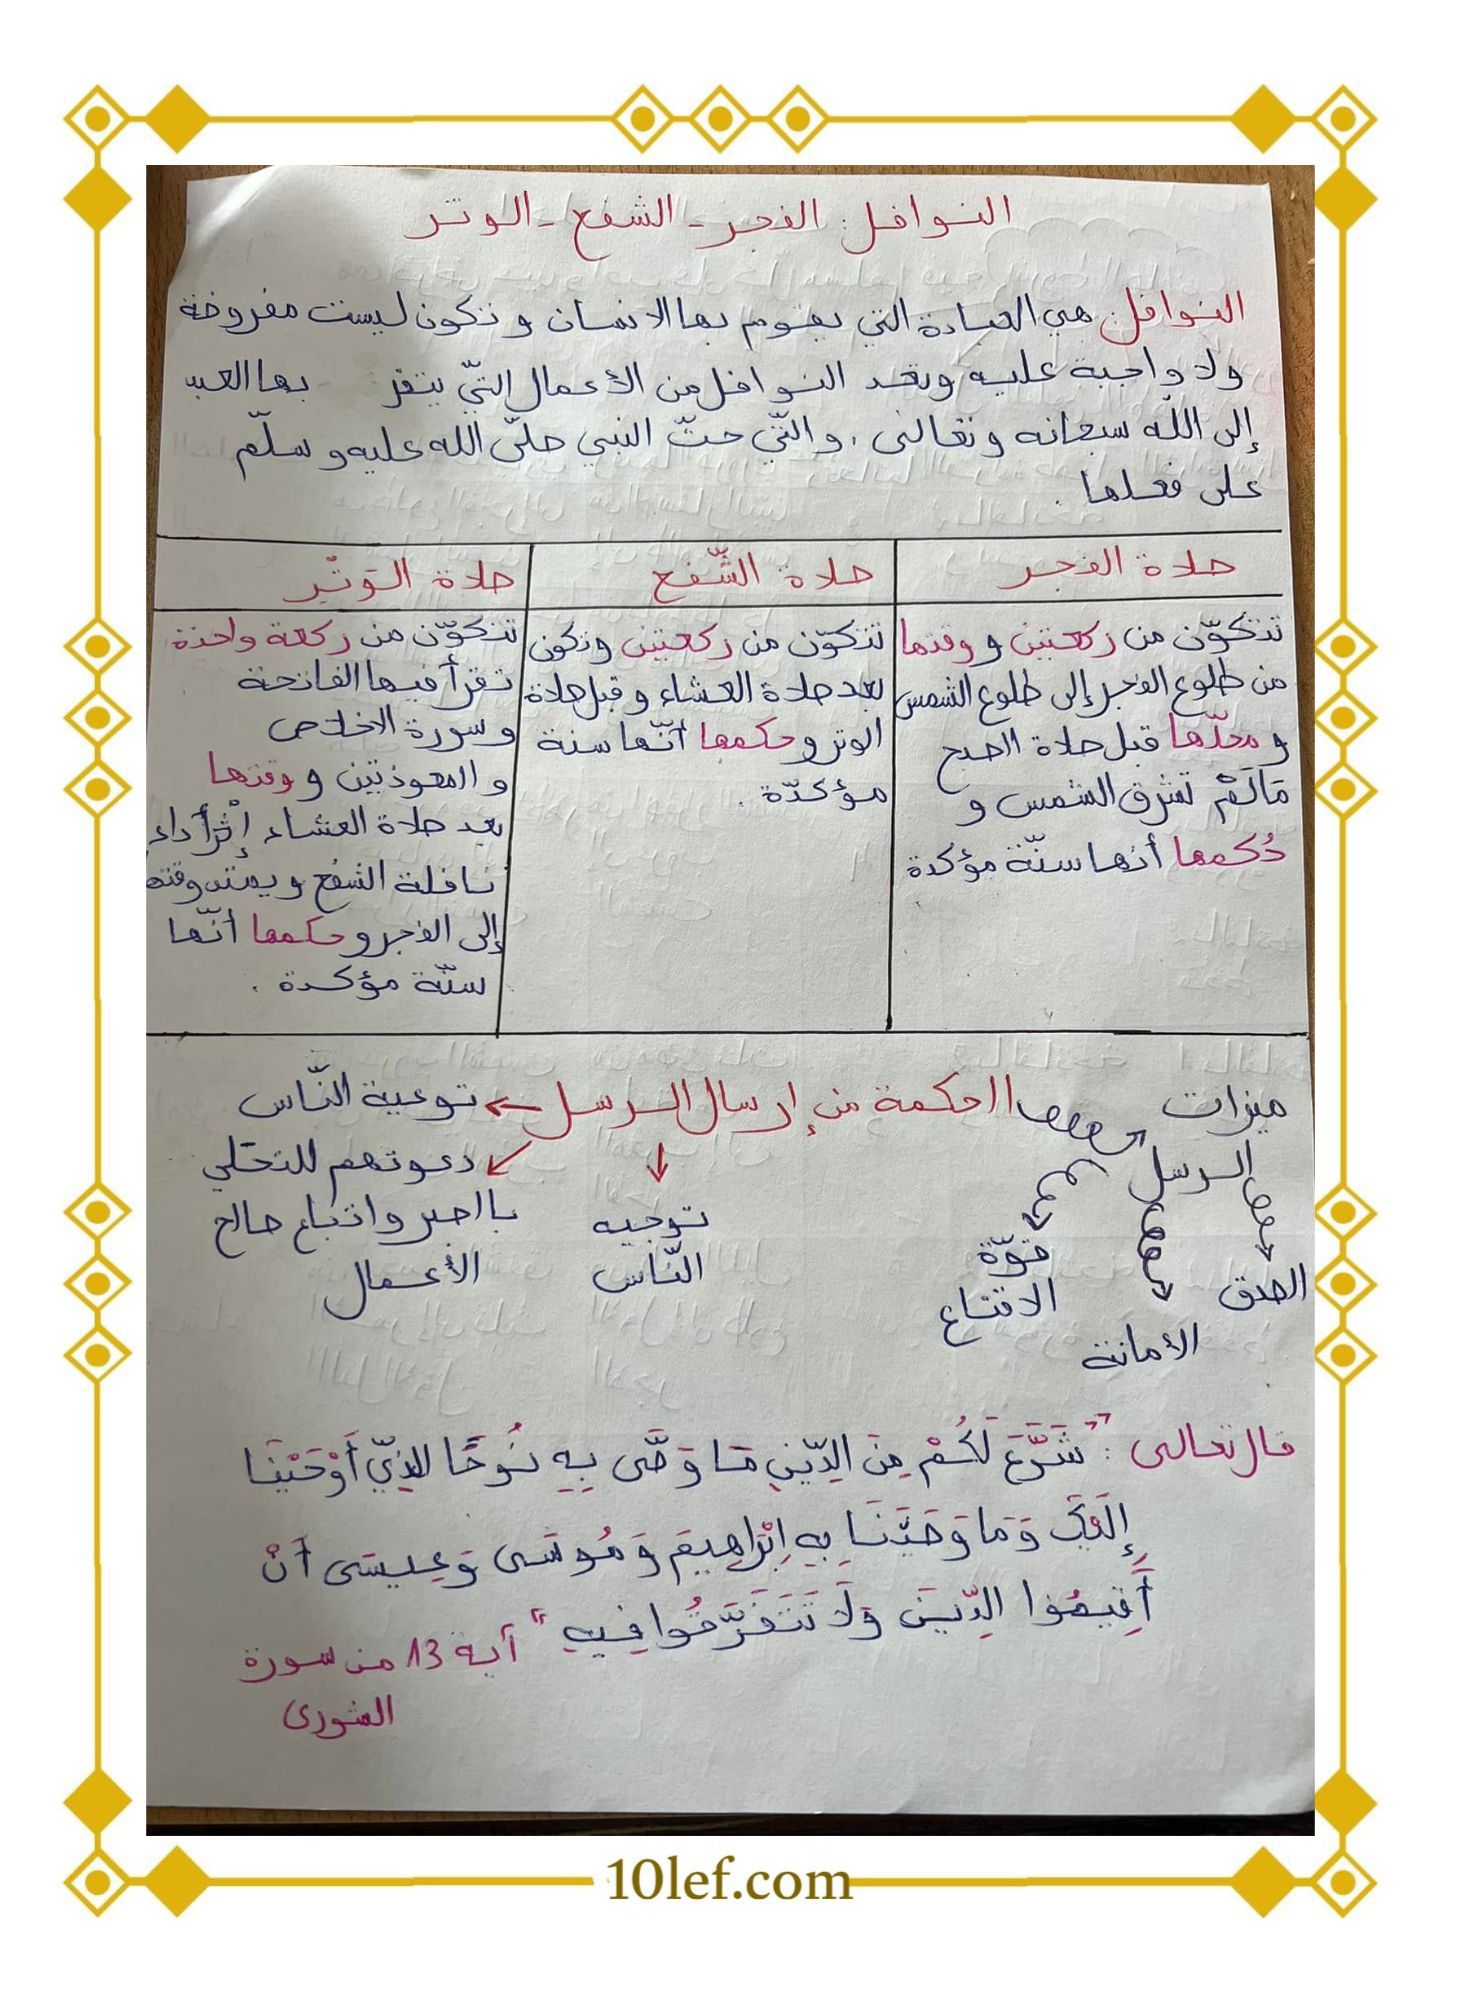 النوافل: الفجر - الشفع - الوتر
النوافل: هي العبادة التي يقوم بها الانسان و تكون ليست مفروضة
ولا واجبة عليه وتعد النوافل من الأعمال التّي يتقر بها العبد
إلى اللّه سبحانه وتعالى، والتّي حثّ النبي صلّى الله عليه و سلّم
على فعلها.
صلاة الفجر
تتكوّن من ركعتين و وقتها
من طلوع الفجر إلى طلوع الشمس
و محلّها قبل صلاة الصبح
مَالَمْ تشرق الشمس و
حُكمها أنها سنّة مؤكدة
صلاة الشّفع
تتكوّن من ركعتين وتكون
بعد صلاة العشاء و قبل صلاة
الوتر و حكمها أنّها سنة
مؤكدّة.
صلاة الوَتْر
تتكوّن من ركعة واحدة
تقرأ فيها الفاتحة
وسورة الاخلاص
و المعوذتين و وقتها
بعد صلاة العشاء إثْر أداء
نافلة الشفع و يمتد وقته
إلى الفجر و حكمها أنّها
سنّة مؤكدة.
ميزات الحكمة من إرسال الرسل توعية النّاس
الرسل دعوتهم للتحلي
توجيه بالصبر واتباع صالح
قوّة النّاس الأعمال
الصدق الاقناع
الأمانة
قال تعالى: "شَرَّعَ لَكُمْ مِنَ الدِّينِ مَا وَصَّى بِهِ نُوحًا الذِّي أَوْحَيْنَا
إِلَيْكَ وَمَا وَصَيَّنَا بِهِ اِبْرَاهِيمَ وَمُوسَى وَعِيسَى أَنْ
أَقِيمُوا الدِّينَ وَلَا تَتَفَرَّقُوا فِيهِ" آية 13 من سورة
الشورى
10lef.com